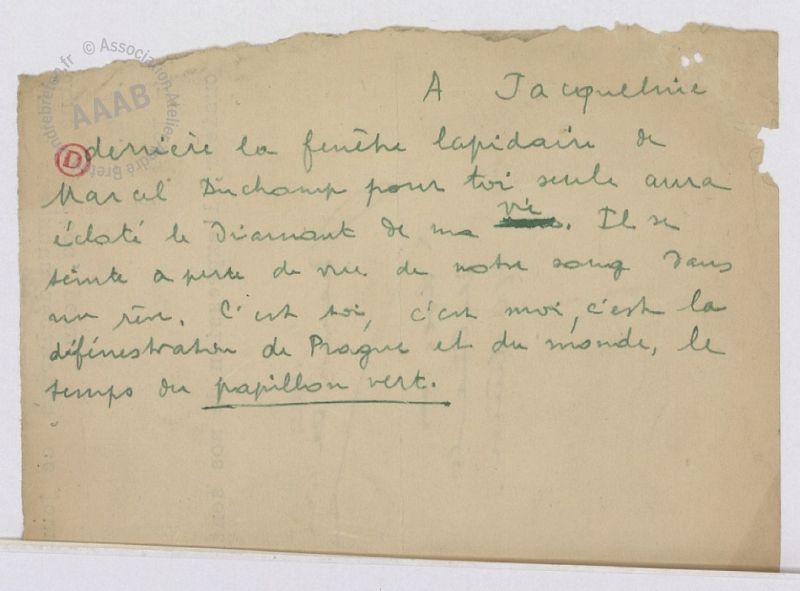 © Association Atelier André Breton
AAAB
A Jacqueline
D derrière la fenêtre lapidaire de
Marcel Duchamp pour toi seule aura
éclaté le Diamant de ma vie. Il se
teinte a perte de vue de notre sang Dans
un rêve. C'est toi, c'est moi, c'est la
défénestration de Prague et du monde, le
temps du papillon vert.